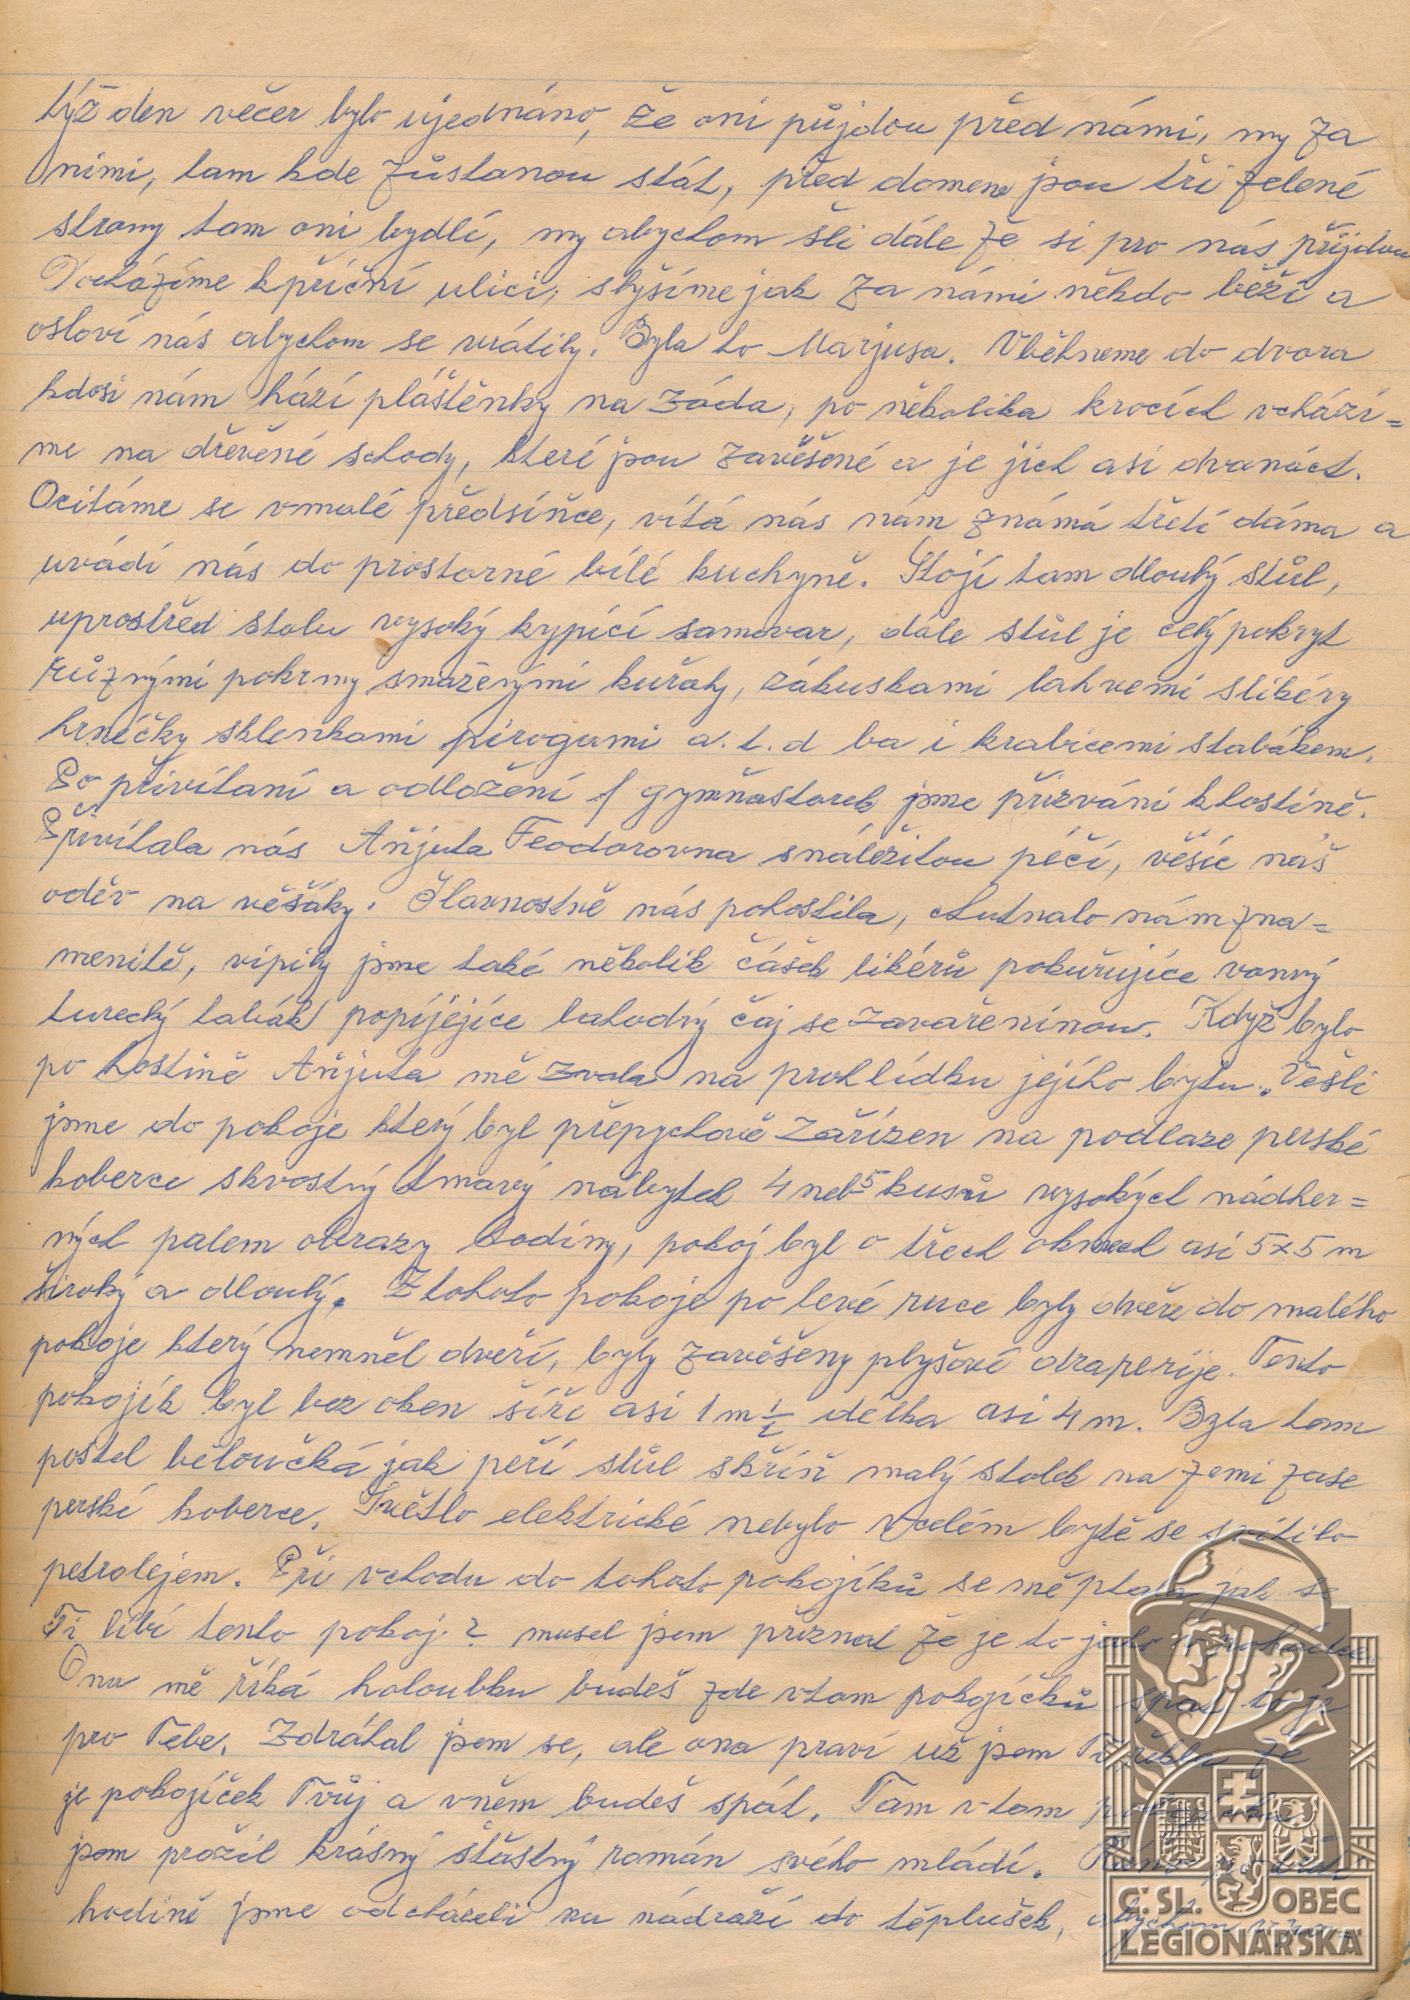 týž den večer bylo ujednáno, že oni půjdou před námi, my za
nimi, tam kde zůstanou stát, před domem jsou tři zelené
stromy tam oni bydlí, my abychom šli dále že si pro nás přijdou
Docházíme k příční ulici, slyšíme jak za námi někdo běží a
osloví nás abychom se vrátily. Byla to Marjusa. Vběhneme do dvora
kdosi nám hází pláštěnky na záda, po několika krocích vchází=
me na dřevěné schody, které jsou zavěšené a je jich asi dvanáct.
Ocitáme se v malé předsíňce, vítá nás nám známá třetí dáma a
uvádí nás do prostorné bílé kuchyně. Stojí tam dlouhý stůl,
uprostřed stolu vysoký kypící samovar, dále stůl je celý pokryt
různými pokrmy smaženými kuřaty, zákuskami lahvemi slikéry
hrnéčky sklenkami pirogami a.t.d ba i krabicemi stabákem.
Po přivítaní a odložení gymňastorek jsme přizváni khostině.
Přivítala nás Aňjuta Feodorovna snáležitou péčí, věšíc náš
oděv na věšáky. Slavnostně nás pohostila, chutnalo nám zna=
menitě, vipily jsme také několik číšek likérů pokuřujíce vonný
turecký tabák popíjejíce lahodný čaj se zavařeninou. Když bylo
po hostině Aňjuta mě zvala na prohlídku jejího bytu. Vešli
jsme do pokoje který byl přepychově zařízen na podlaze perské
koberce skvostný tmavý nábytek 4 neb 5 kusů vysokých nádher=
ných palem obrazy hodiny, pokoj byl o třech oknech asi 5x5 m
široký a dlouhý. Z tohoto pokoje po levé ruce byly dveře do malého
pokoje který nemněl dveří, byly zavěšeny plyšové draperije. Tento
pokojík byl bez oken šíři asi 1 m ½ délka asi 4 m. Byla tam
postel běloučká jak peří stůl skříň malý stolek na zemi zase
perské koberce. Světlo elektrické nebylo vcelém bytě se svítilo
petrolejem. Při vchodu do tohoto pokojíků se mě ptala jak se
Ti líbí tento pokoj? musel jsem přiznat že je to jako v pohádce.
Ona mě říká holoubku budeš zde vtom pokojíčků spat to je
pro Tebe. Zdráhal jsem se, ale ona praví už jsem Ti řekla že
je pokojíček Tvůj a vněm budeš spát. Tam v tom pokojíčku
jsem prožil krásný šťastný román svého mládí.
hodině jsme odcházeli na nádraží do těplušek, abychom
Č. SL. OBEC
LEGIONÁŘSKÁ